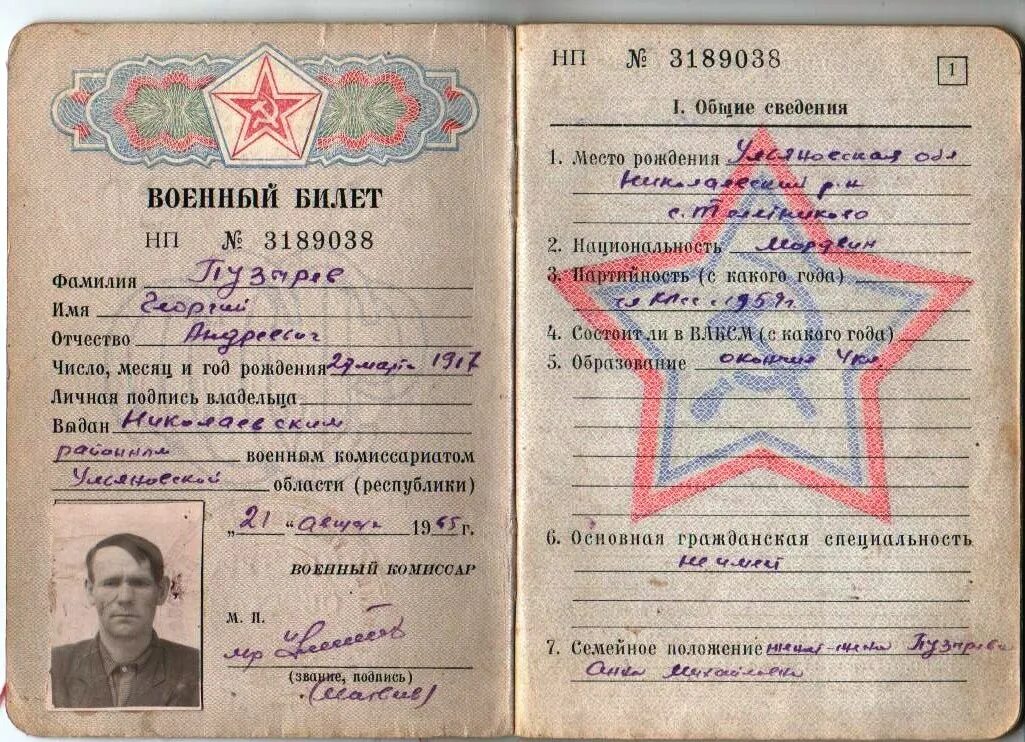 ВОЕННЫЙ БИЛЕТ
НП № 3189038
Фамилия Пузырев
Имя Георгий
Отчество Андреевич
Число, месяц и год рождения 27 март 1917
Личная подпись владельца
Выдан Николаевским
районным военным комиссариатом
Ульяновской области (республики)
„21“ августа 1965 г.
ВОЕННЫЙ КОМИССАР
М. П.
(звание, подпись)
НП № 3189038
1
I. Общие сведения
1. Место рождения Ульяновская обл
Николаевский р-н
с.
2. Национальность Мордвин
3. Партийность (с какого года)
1959г
4. Состоит ли в ВЛКСМ (с какого года)
5. Образование окончил 4 кл
6. Основная гражданская специальность
не имеет
7. Семейное положение женат-жена Пузырева
Анна Михайловна